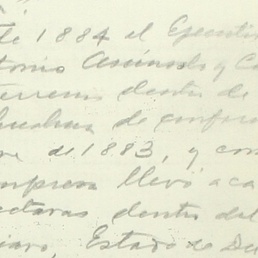 de 1884 el Ejecuti
tonio Asúnsolo y Ca
terrenos dentro de
huahua de conform
re de 1883, y con
empresa llevó a ca
ectáreas dentro del
Estado de Du